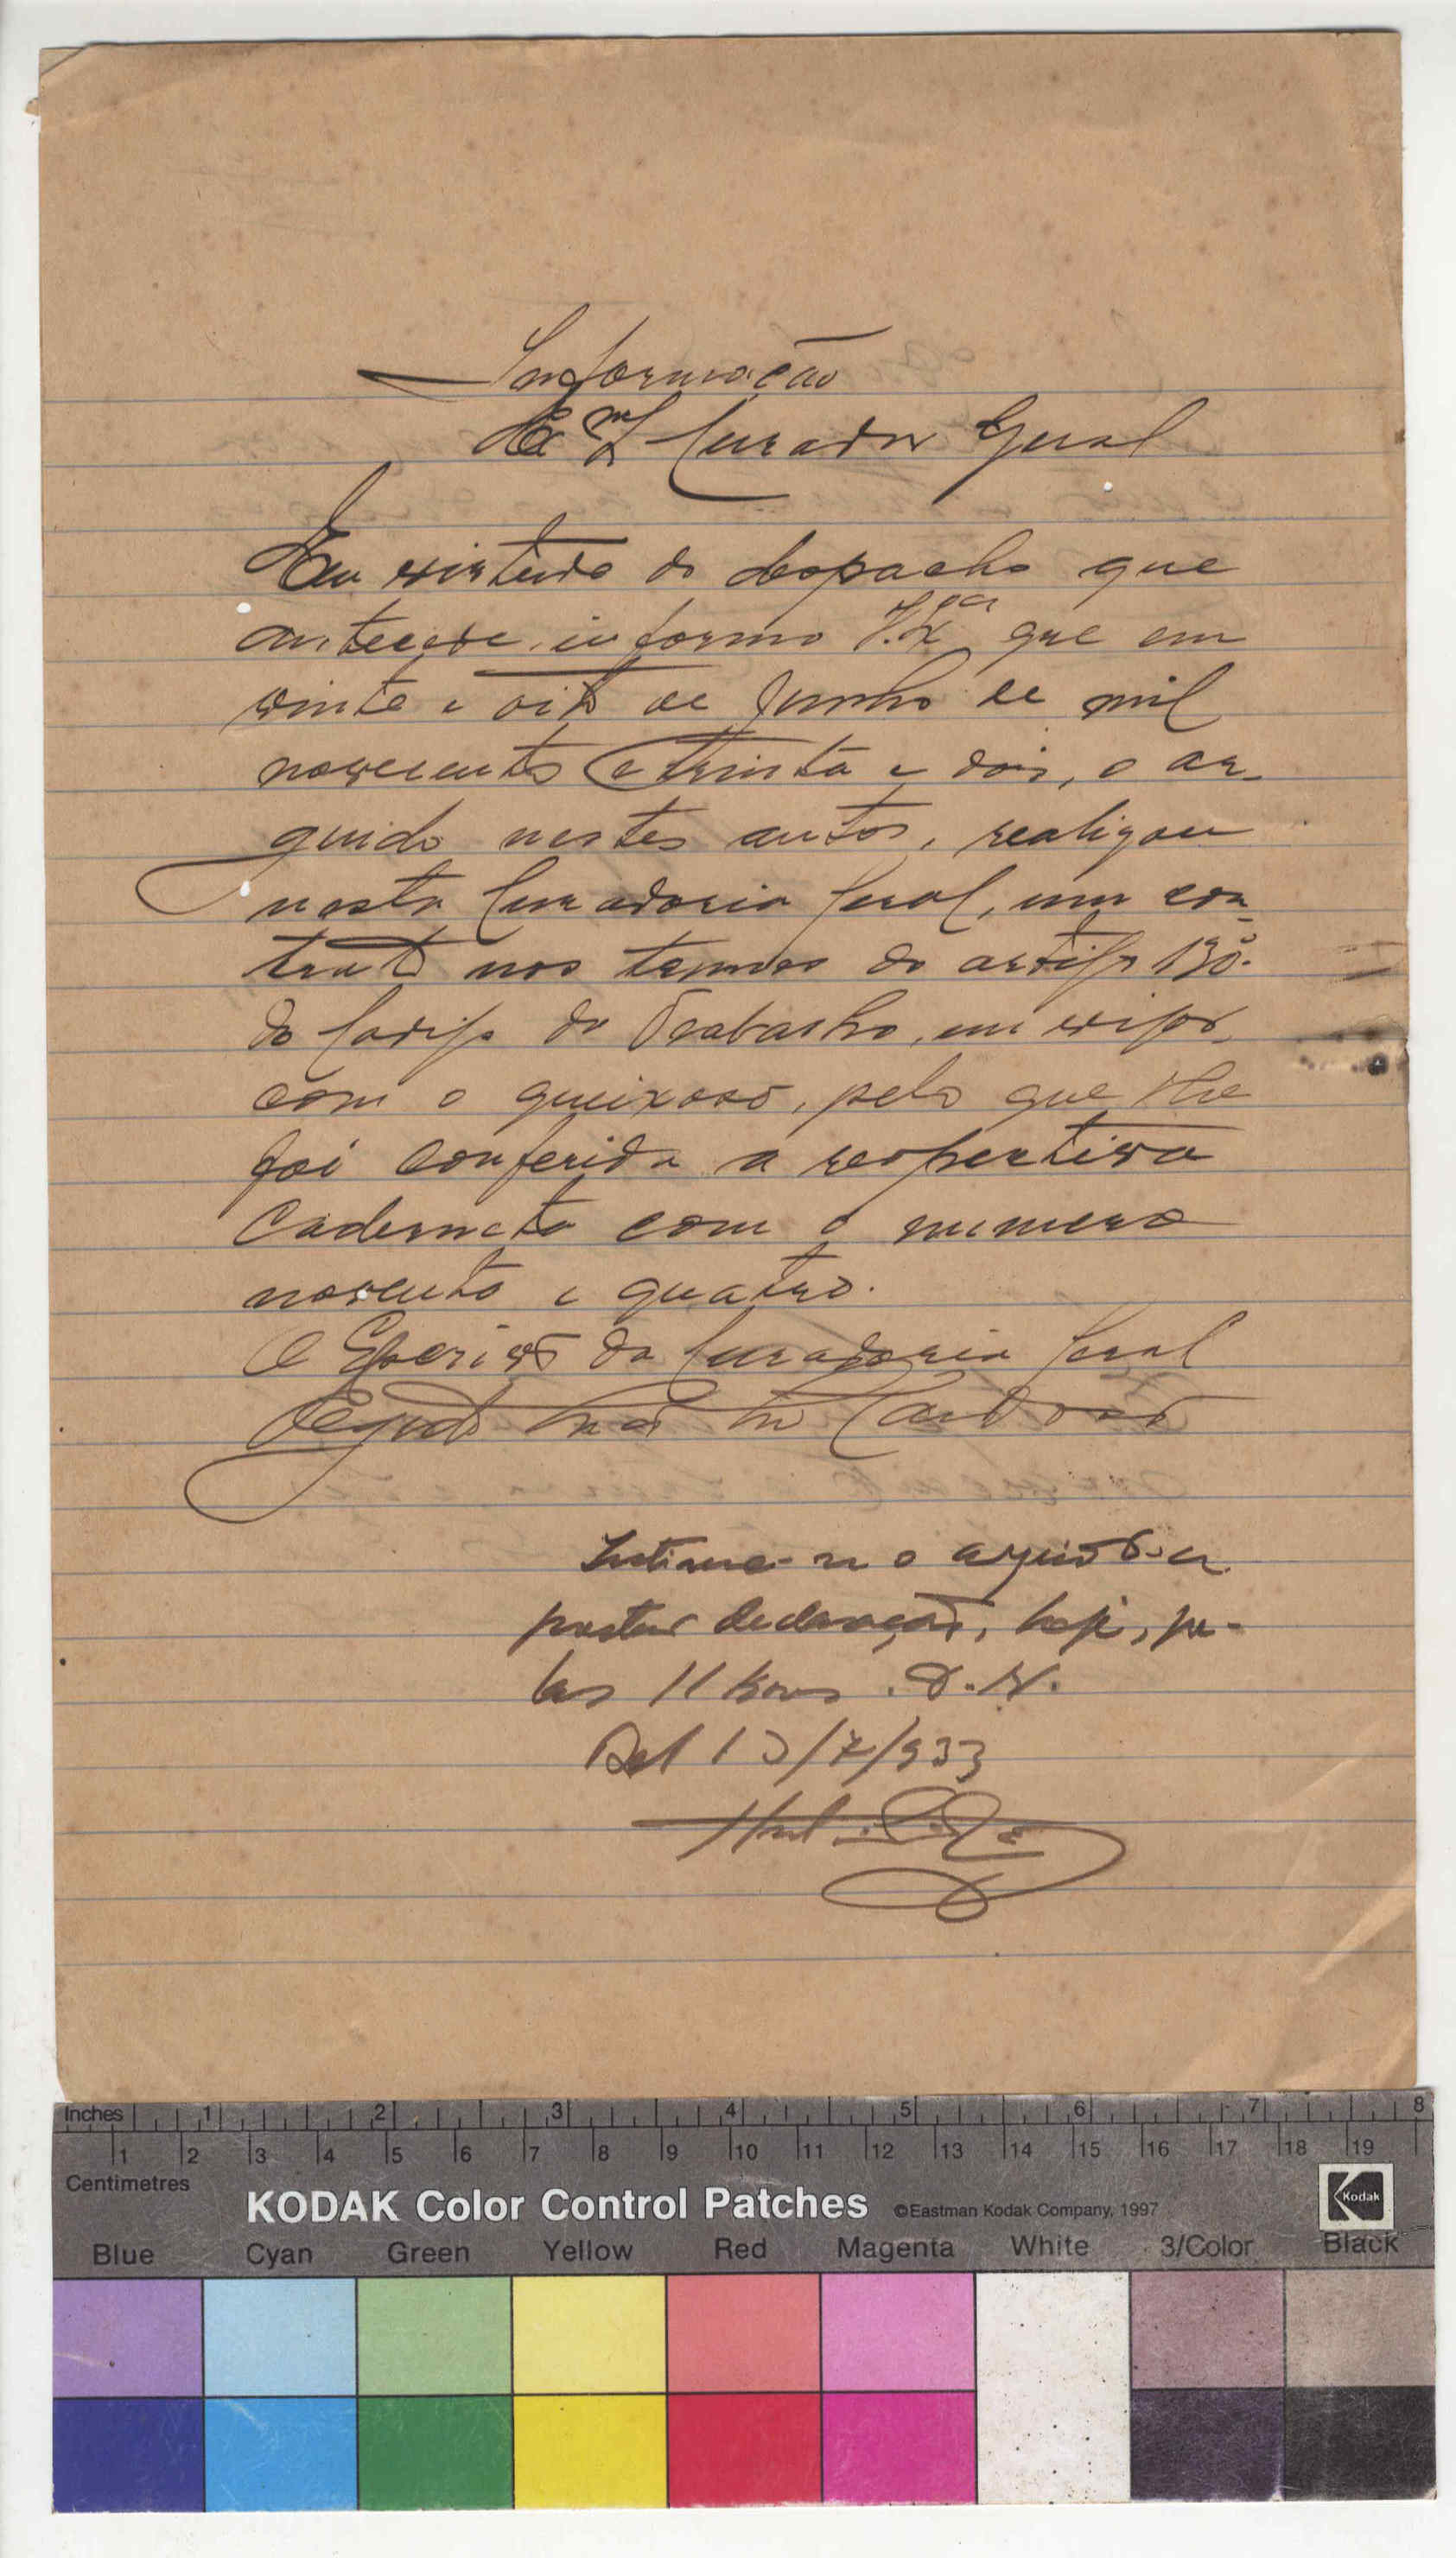 Informação
Exmo Curador Geral
Em virtude do despacho que
antecede, informo V. Exa que em
vinte e oito de Junho de mil
novecentos e trinta e dois, o ar-
guido nestes autos, realizou
nesta Curadoria Geral, um con-
trato nos termos do artigo 130º.
do Codigo do Trabalho, em vigor,
com o queixoso, pelo que lhe
foi conferida a respectiva
Caderneta com o numero
noventa e quatro.
O Escrivão da Curadoria Geral
Intime-se o arguido a
prestar declarações, hoje, pe-
las 11 horas. D. N.
13/7/933
Inches 1 2 3 4 5 6 7 8
1 2 3 4 5 6 7 8 9 10 11 12 13 14 15 16 17 18 19
Centimetres
KODAK Color Control Patches ©Eastman Kodak Company, 1997 Kodak
Blue Cyan Green Yellow Red Magenta White 3/Color Black